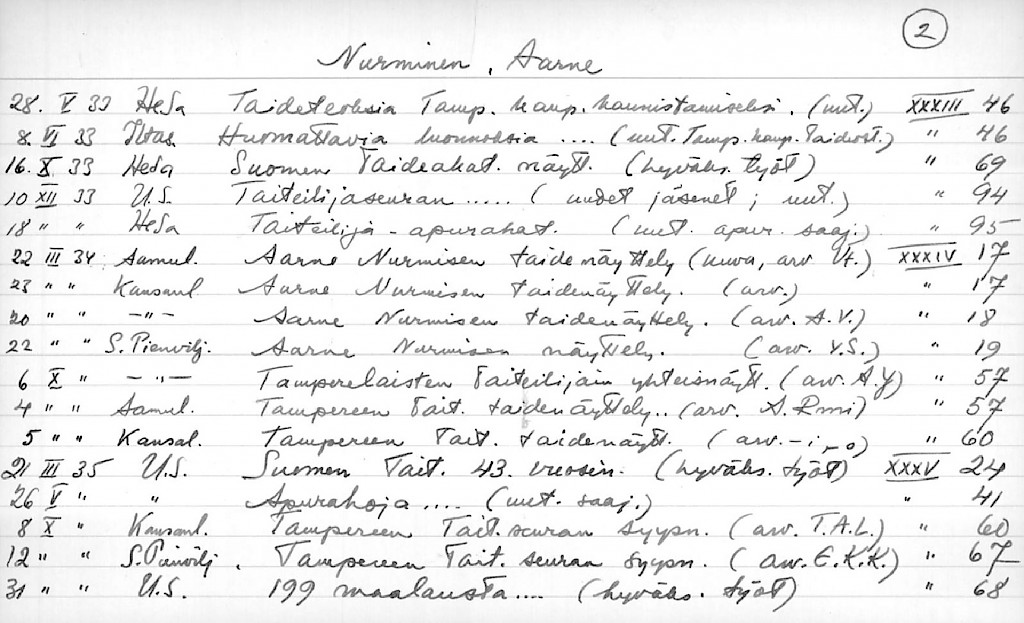 2
Nurminen, Aarne
28. V 33 HeSa Taideteoksia Tamp. kaup. kaunistamiseksi. (uut.) XXXIII 46
8. VI 33 Iltas. Huomattavia luonnoksia .... (uut. Tamp. kaup. Taidest.) " 46
16. X 33 HeSa Suomen Taideakat. näytt. (hyväks. työt) " 69
10 XII 33 U.S. Taiteilijaseuran ..... (uudet jäsenet; uut.) " 94
18 " " HeSa Taiteilija-apurahat. (uut. apur. saaj.) " 95
22 III 34 Aamul. Aarne Nurmisen taidenäyttely (kuva, arv. Vt.) XXXIV 17
23 " " Kansanl. Aarne Nurmisen taidenäyttely. (arv.) " 17
20 " " -"- Aarne Nurmisen taidenäyttely. (arv. A.V.) " 18
22 " " S. Pienvilj. Aarne Nurmisen näyttely. (arv. Y.S.) " 19
6 X " -"- Tamperelaisten Taiteilijain yhteisnäytt. (arv. A.Y) " 57
4 " " Aamul. Tampereen Tait. taidenäyttely.. (arv. A. Rmi) " 57
5 " " Kansal. Tampereen Tait. taidenäytt. (arv. -i,-o) " 60
21 III 35 U.S. Suomen Tait. 43. vuosin. (hyväks. työt) XXXV 24
26 V " " Apurahoja .... (uut. saaj.) " 41
8 X " Kansanl. Tampereen Tait.seuran syysn. (arv. T.A.L.) " 60
12 " " S.Pienvilj. Tampereen Tait. seuran syysn. (arv. E.K.K.) " 67
31 " " U.S. 199 maalausta.... (hyväks. työt) " 68